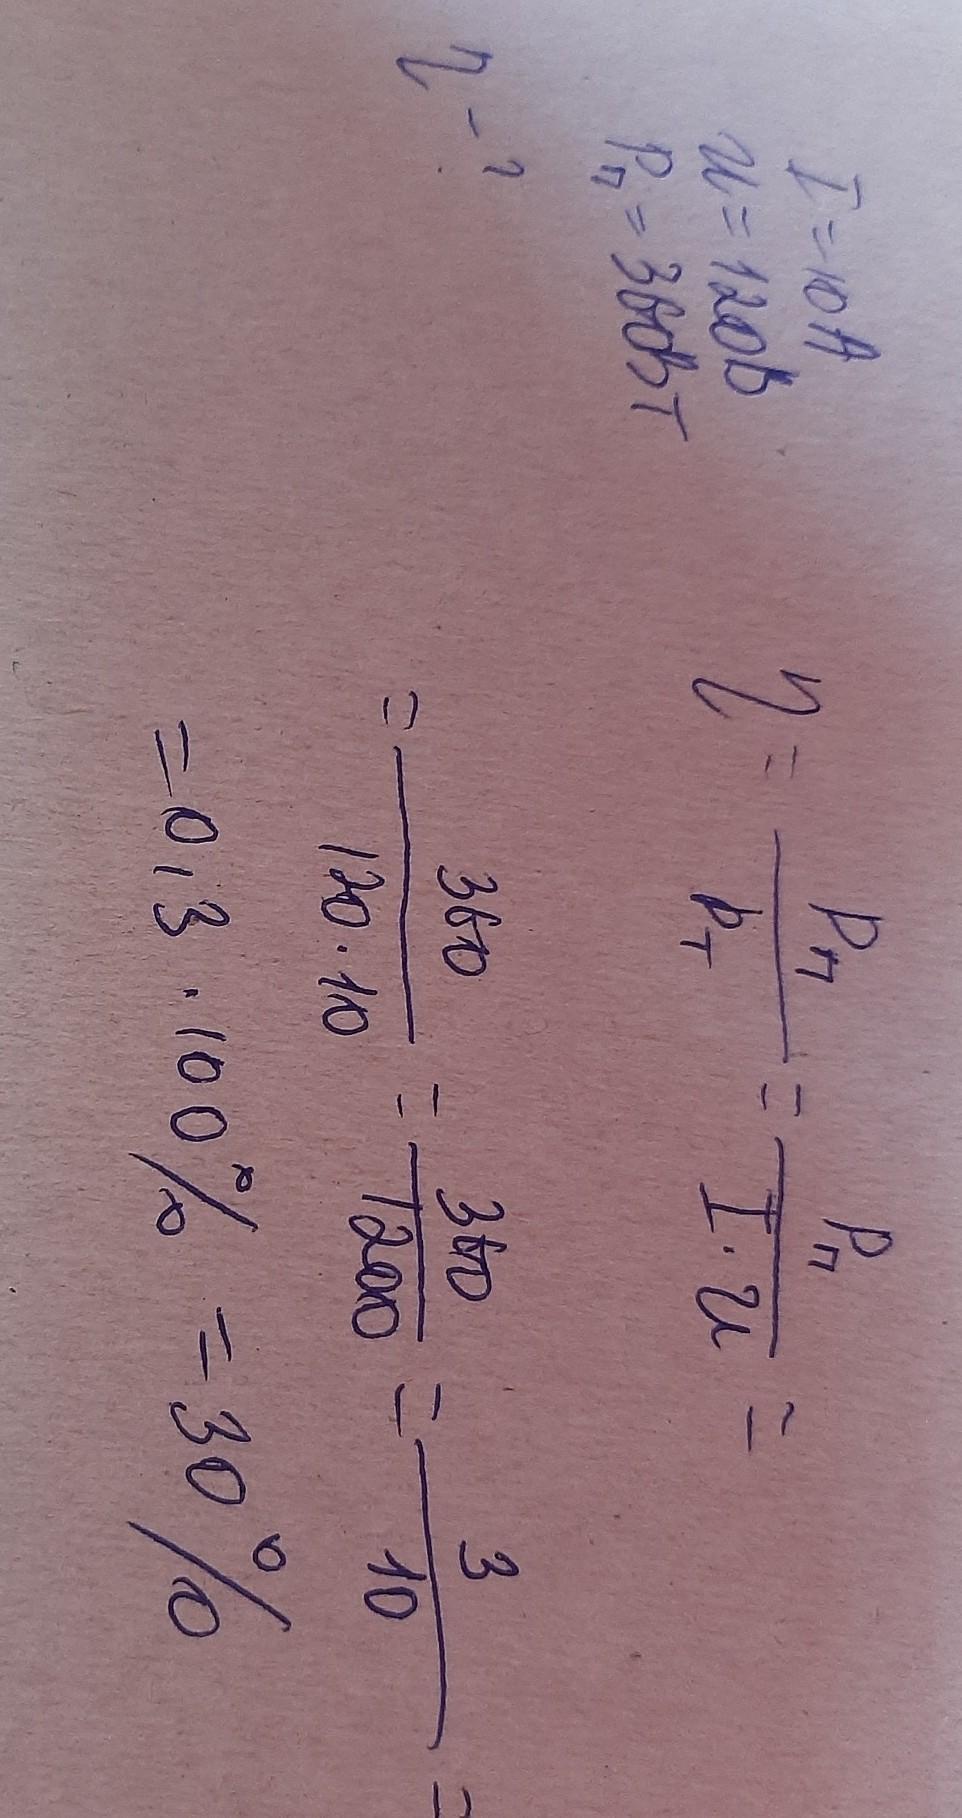 I = 10A
U = 120В
Pп = 360Вт
η - ?
η = Pп / Pт = Pп / I · U =
= 360 / 120 · 10 = 360 / 1200 = 3 / 10 =
= 0,3 · 100% = 30%